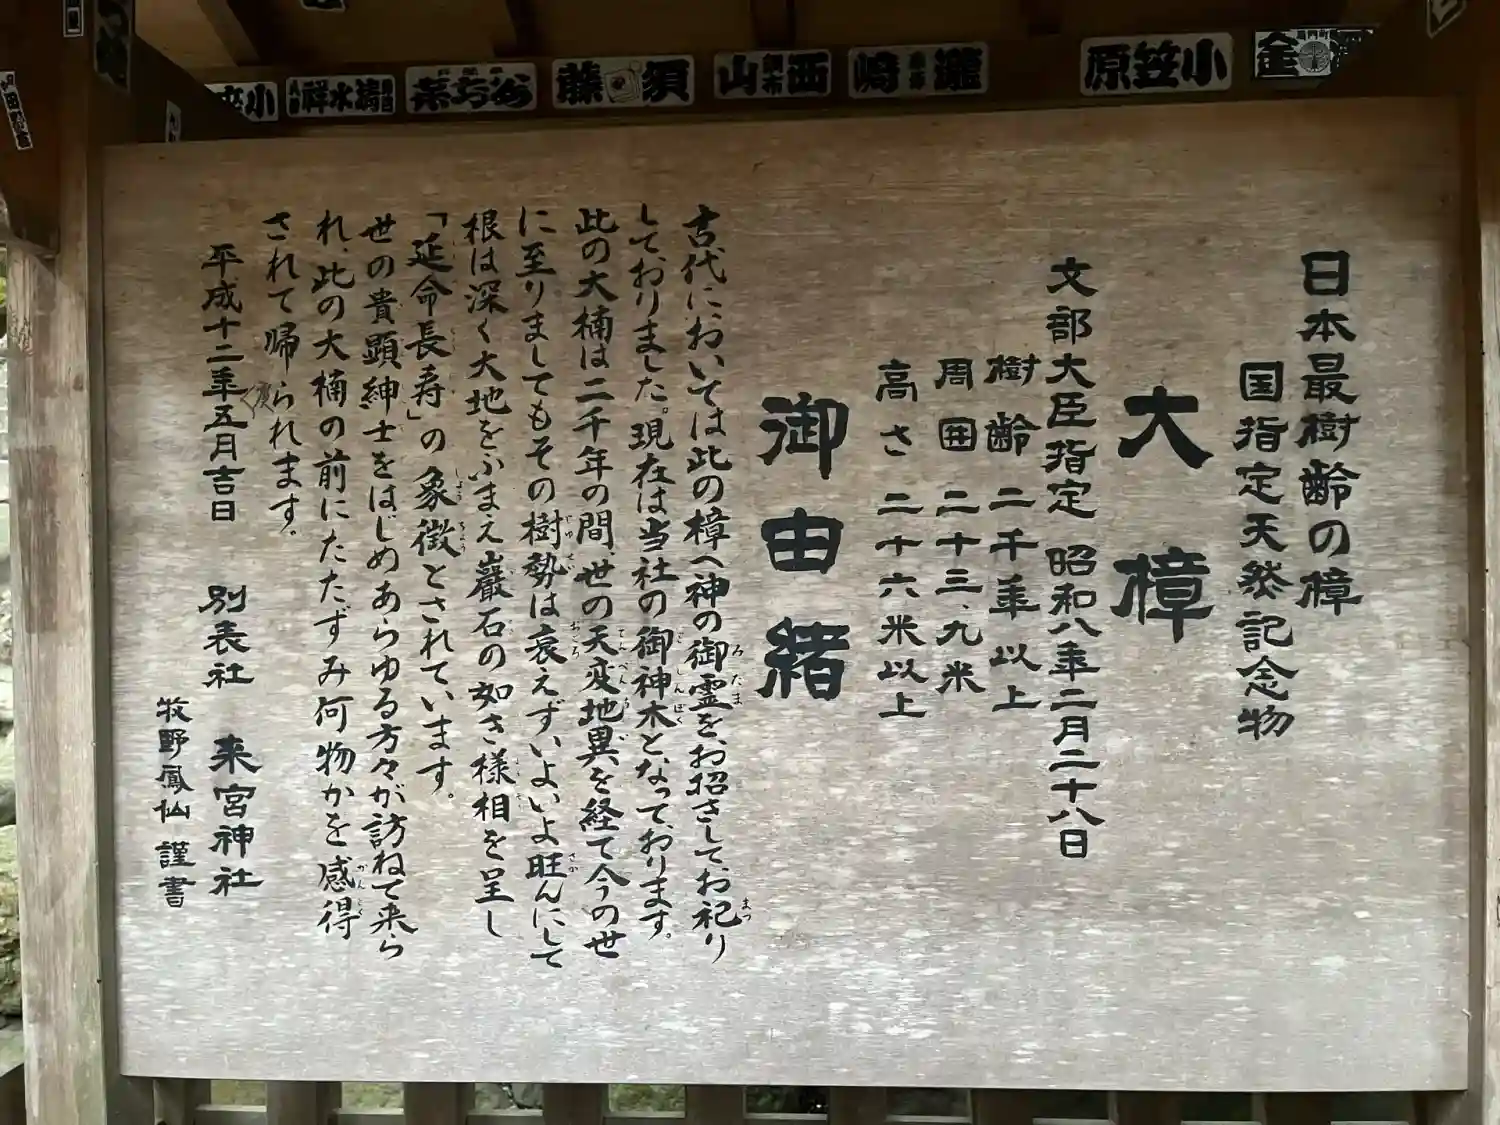 日本最樹齢の樟
国指定天然記念物
大樟
文部大臣指定 昭和八年二月二十八日
樹齢 二千年以上
周囲 二十三、九米
高さ 二十六米以上
御由緒
古代においては此の樟へ神の御霊を、お招さしてお祀り
しておりました。現在は当社の御神木となっております。
此の大楠は二千年の間、世の天変地異を経て今の世
に至りましてもその樹勢は衰えずいよいよ旺んにして
根は深く大地をふまえ巖石の如き様相を呈し
「延命長寿」の象徴とされています。
世の貴顕紳士をはじめあらゆる方々が訪ねて来ら
れ、此の大楠の前にたたずみ何物かを感得
されて帰られます。
平成十二年五月吉日 別表社 来宮神社
牧野鳳仙 謹書
小笠原
瀧崎
西山
須藤
清水祥
小笠